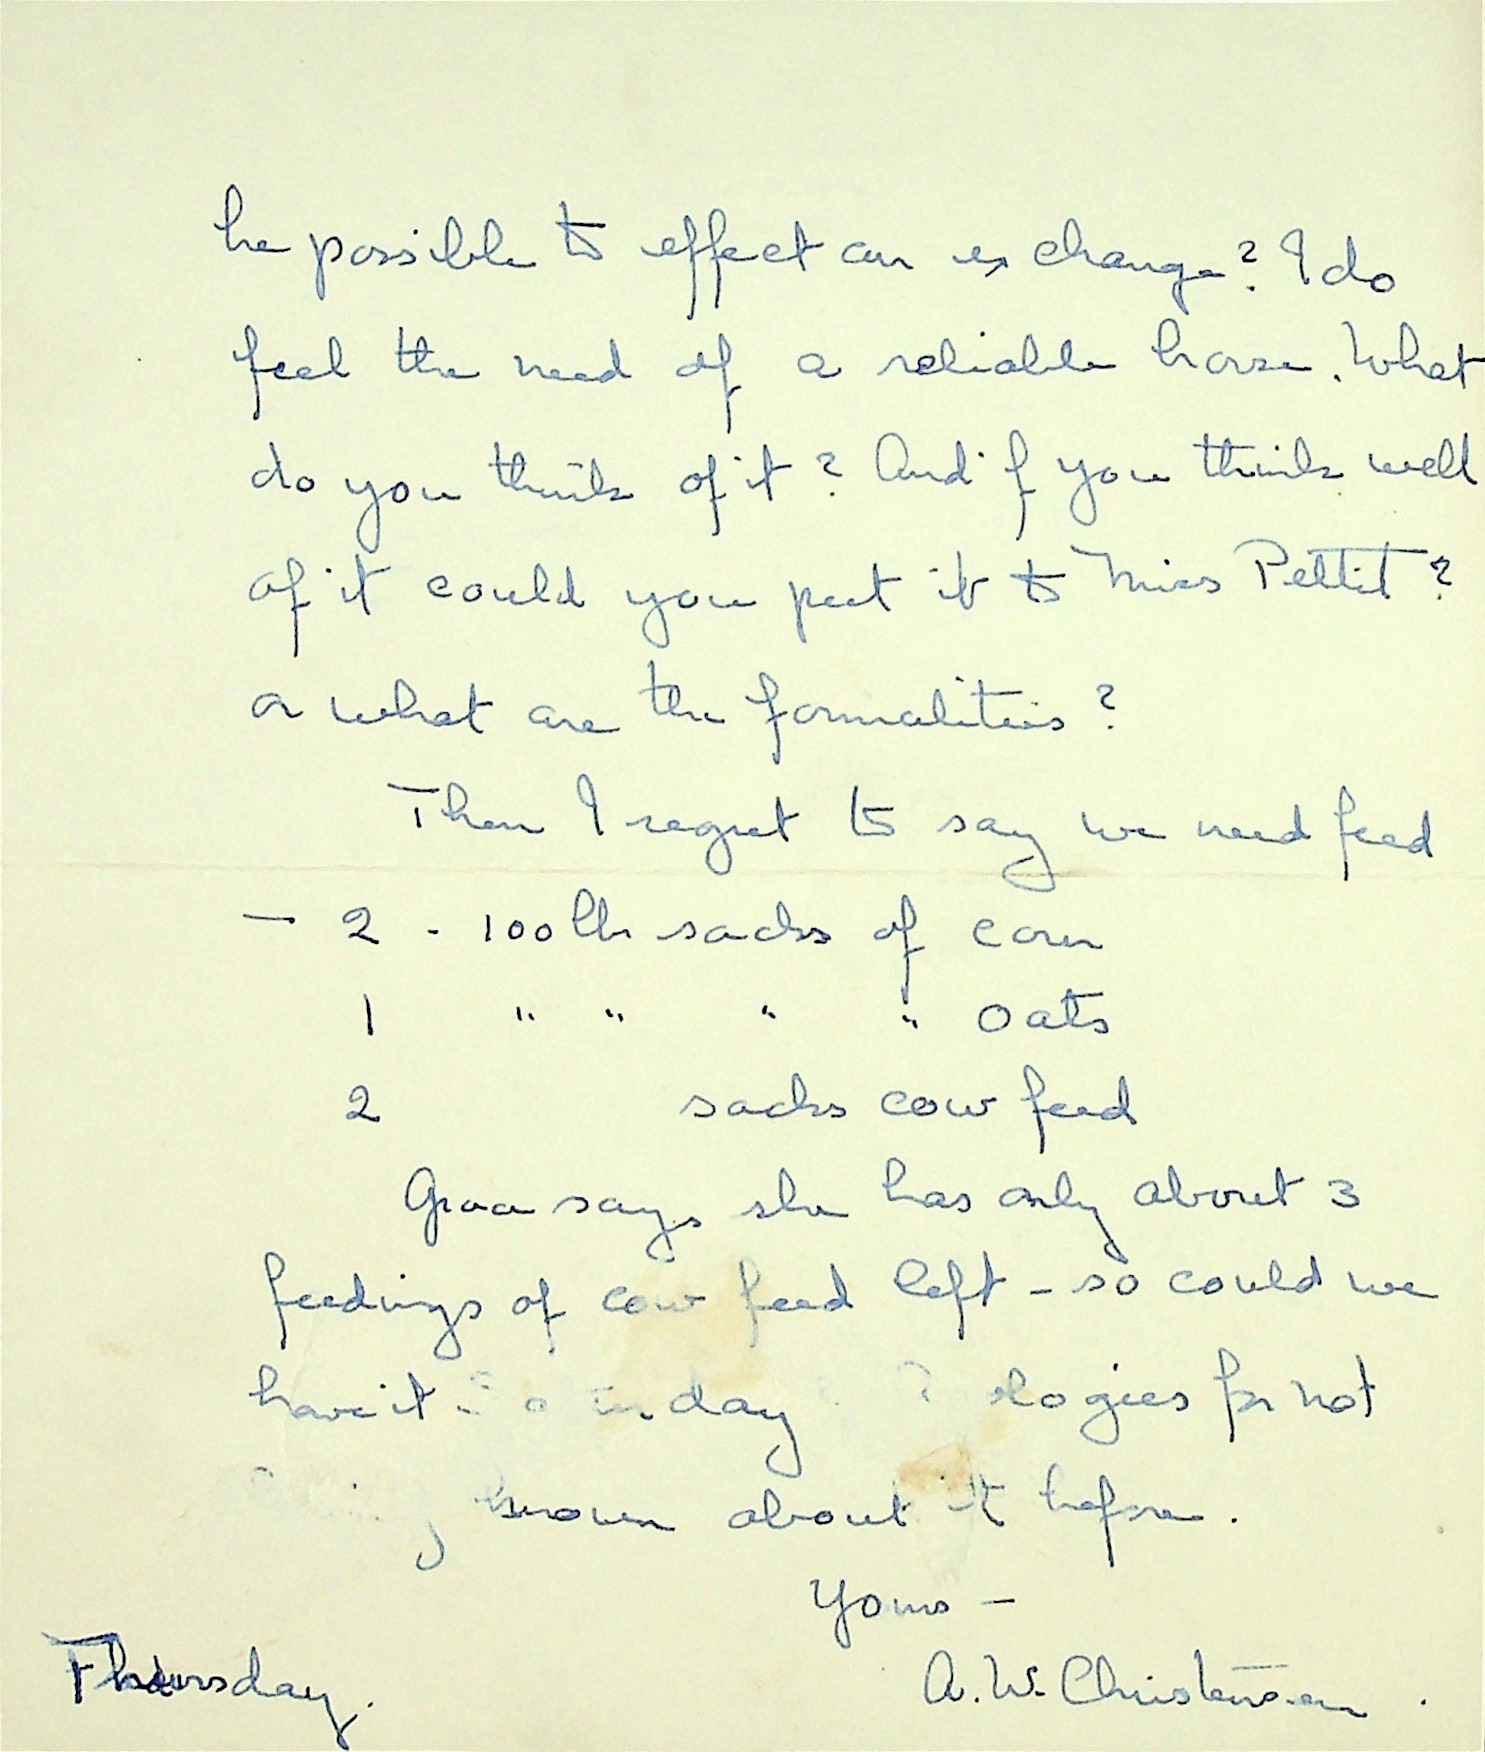 be possible to effect an exchange? I do
feel the need of a reliable horse. What
do you think of it? And if you think well
of it could you put it to Miss Pettit?
or what are the formalities?
Then I regret to say we need feed
— 2 - 100 lb sacks of corn
1 " " " " Oats
2 sacks cow feed
Grace says she has only about 3
feedings of cow feed left - so could we
have it day for not
known about it before.
Yours —
A. W. Christensen.
Thursday.